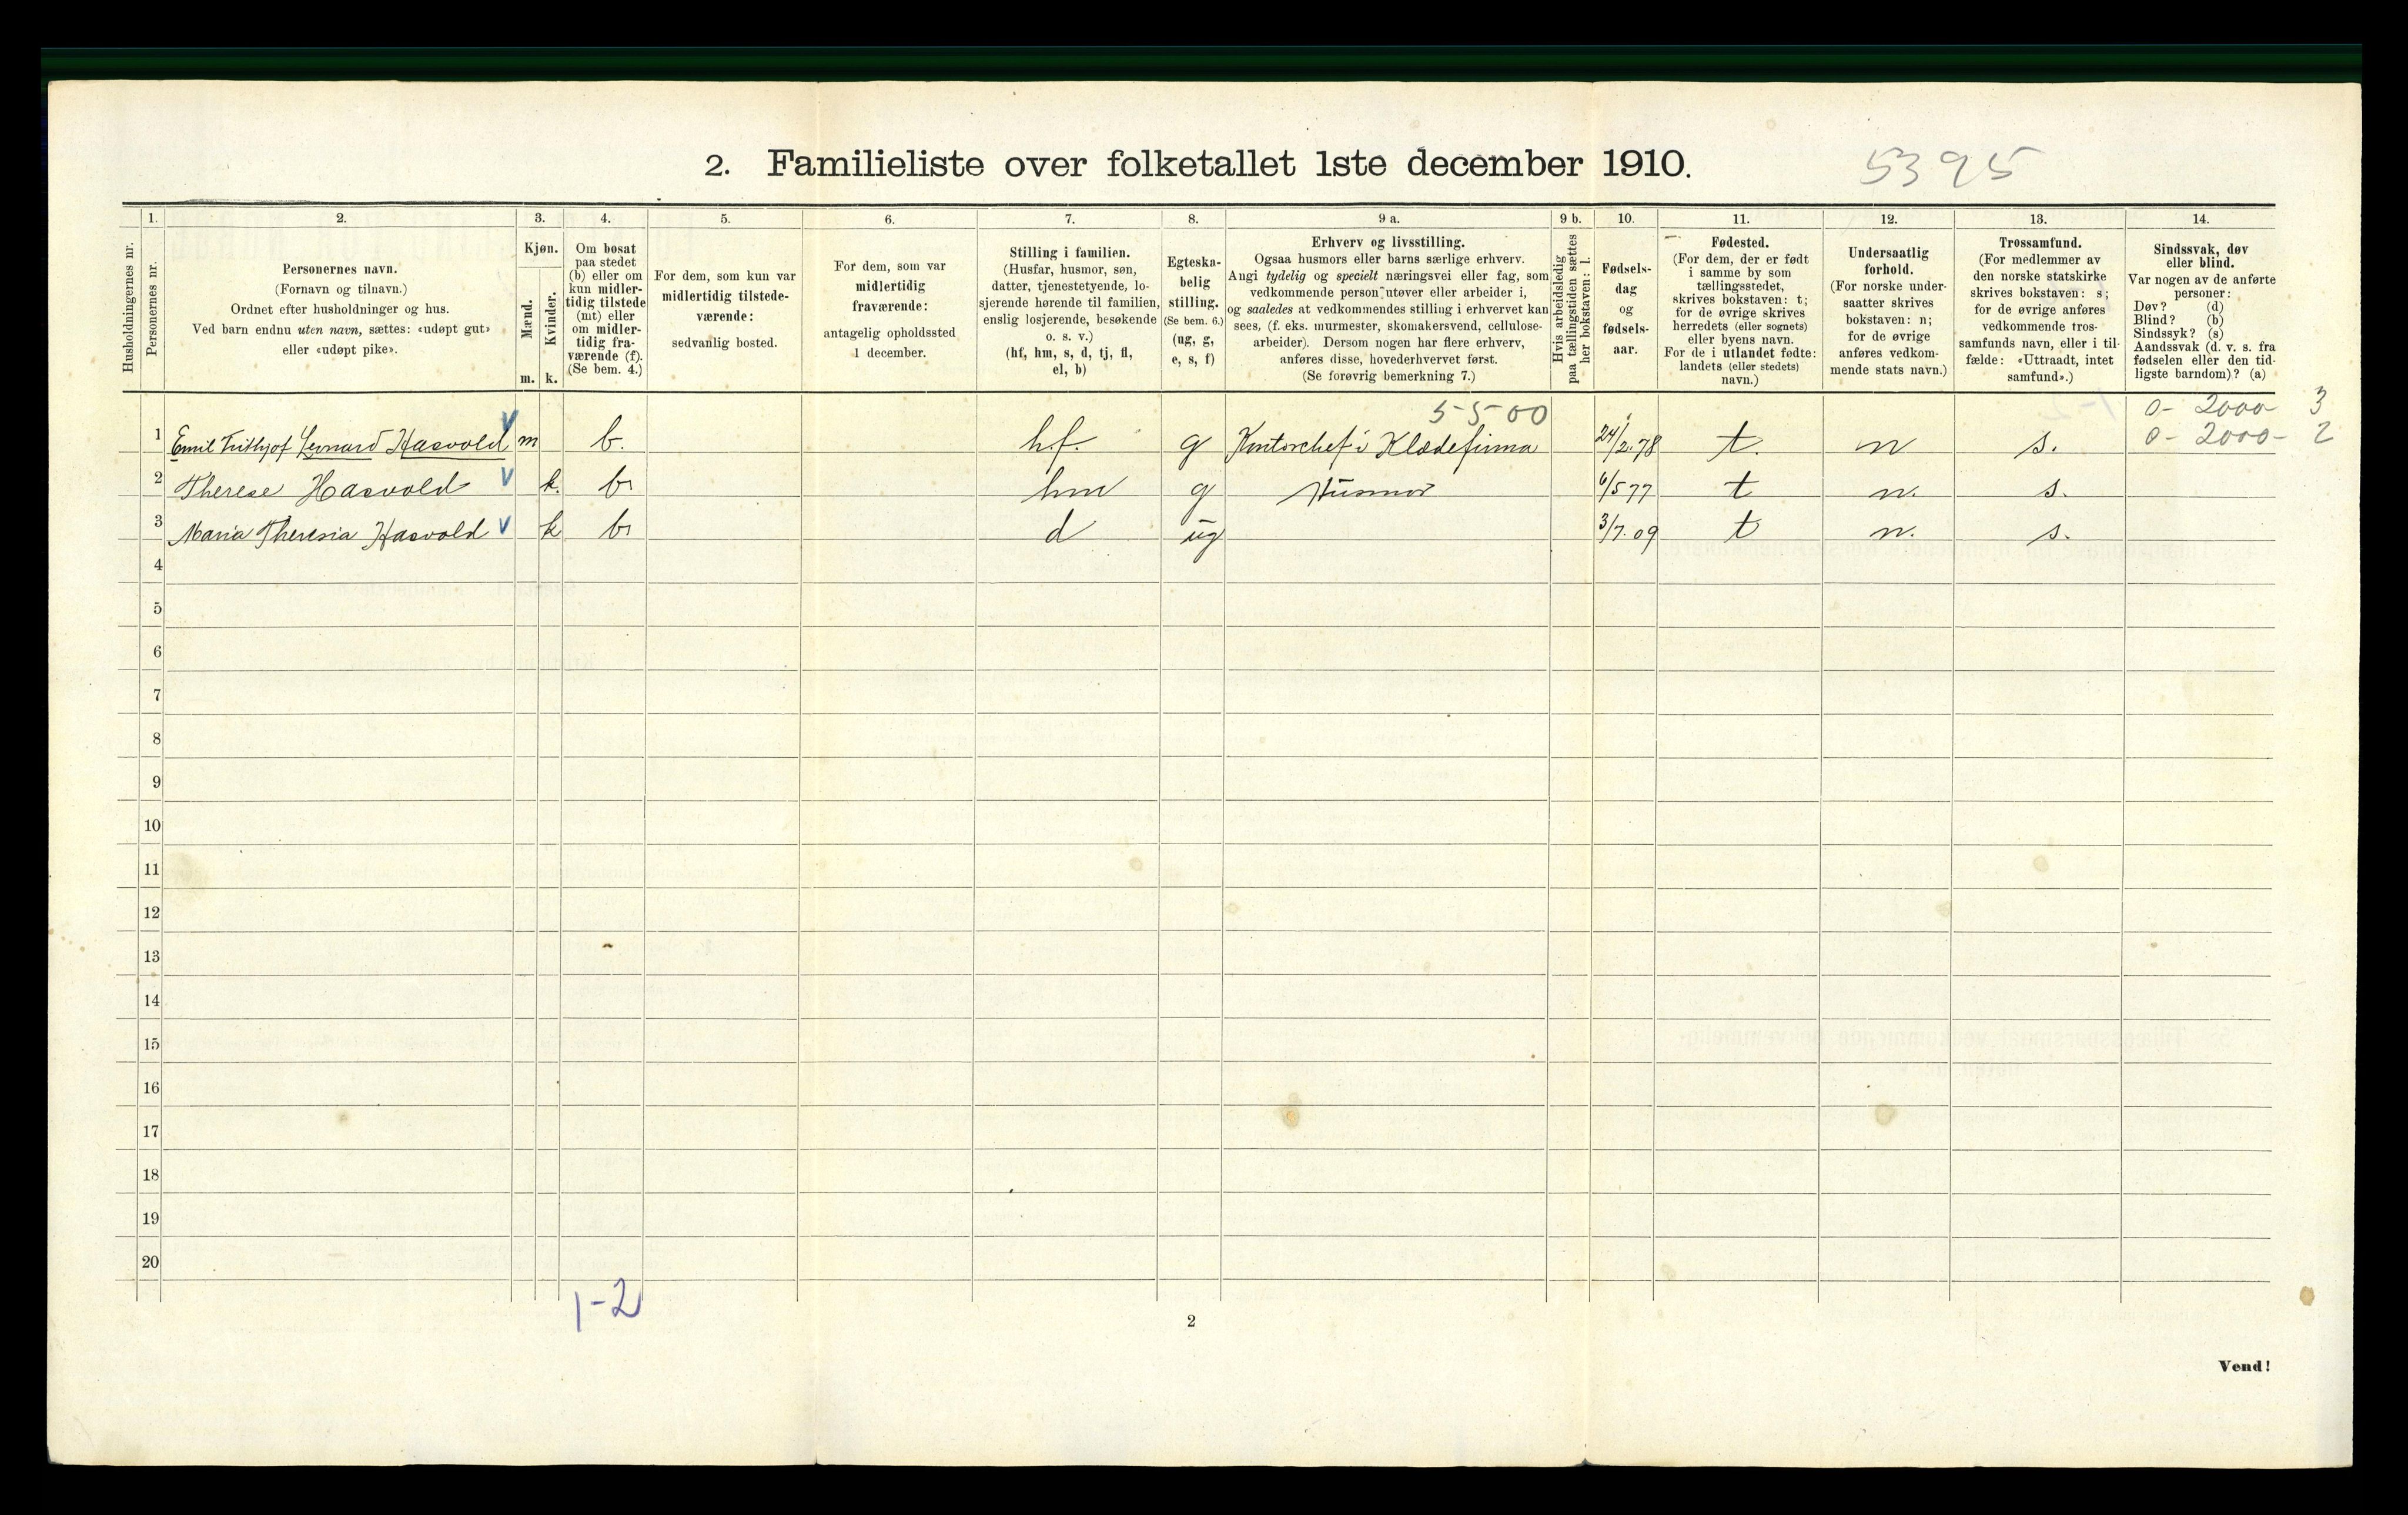 2. Familieliste over folketallet 1ste december 1910.
5395
Husholdningernes nr.
1.
Personernes nr.
2.
Personernes navn.
(Fornavn og tilnavn.)
Ordnet efter husholdninger og hus.
Ved barn endnu uten navn, sættes: «udøpt gut»
eller «udøpt pike».
3.
Kjøn.
Mænd.
Kvinder.
m. k.
4.
Om bosat
paa stedet
(b) eller om
kun midler-
tidig tilstede
(mt) eller
om midler-
tidig fra-
værende (f).
(Se bem. 4.)
5.
For dem, som kun var
midlertidig tilstede-
værende:
sedvanlig bosted.
6.
For dem, som var
midlertidig
fraværende:
antagelig opholdssted
1 december.
7.
Stilling i familien.
(Husfar, husmor, søn,
datter, tjenestetyende, lo-
sjerende hørende til familien,
enslig losjerende, besøkende
o. s. v.)
(hf, hm, s, d, tj, fl,
el, b)
8.
Egteska-
belig
stilling.
(Se bem. 6.)
(ug, g,
e, s, f)
9 a.
Erhverv og livsstilling.
Ogsaa husmors eller barns særlige erhverv.
Angi tydelig og specielt næringsvei eller fag, som
vedkommende person utøver eller arbeider i,
og saaledes at vedkommendes stilling i erhvervet kan
sees, (f. eks. murmester, skomakersvend, cellulose-
arbeider). Dersom nogen har flere erhverv,
anføres disse, hovederhvervet først.
(Se forøvrig bemerkning 7.)
9 b.
Hvis arbeidsledig
paa tællingstiden sættes
her bokstaven: l.
10.
Fødsels-
dag
og
fødsels-
aar.
11.
Fødested.
(For dem, der er født
i samme by som
tællingsstedet,
skrives bokstaven: t;
for de øvrige skrives
herredets (eller sognets)
eller byens navn.
For de i utlandet fødte:
landets (eller stedets)
navn.)
12.
Undersaatlig
forhold.
(For norske under-
saatter skrives
bokstaven: n;
for de øvrige
anføres vedkom-
mende stats navn.)
13.
Trossamfund.
(For medlemmer av
den norske statskirke
skrives bokstaven: s;
for de øvrige anføres
vedkommende tros-
samfunds navn, eller i til-
fælde: «Uttraadt, intet
samfund».)
14.
Sindssvak, døv
eller blind.
Var nogen av de anførte
personer:
Døv? (d)
Blind? (b)
Sindssyk? (s)
Aandssvak (d. v. s. fra
fødselen eller den tid-
ligste barndom)? (a)
5-5-00
0- 2000- 3
0- 2000- 2
1 Emil Frithjof Leonard Hasvold V m b. hf. g Kontorchef i Klædefirma 24/2.78 t. n s.
2 Therese Hasvold V k. b hm g Husmor 6/5 77 t n. s.
3 Maria Theresia Hasvold V k b d ug 3/7.09 t n. s.
4
5
6
7
8
9
10
11
12
13
14
15
16
17
18
19
20
1-2
2
Vend!